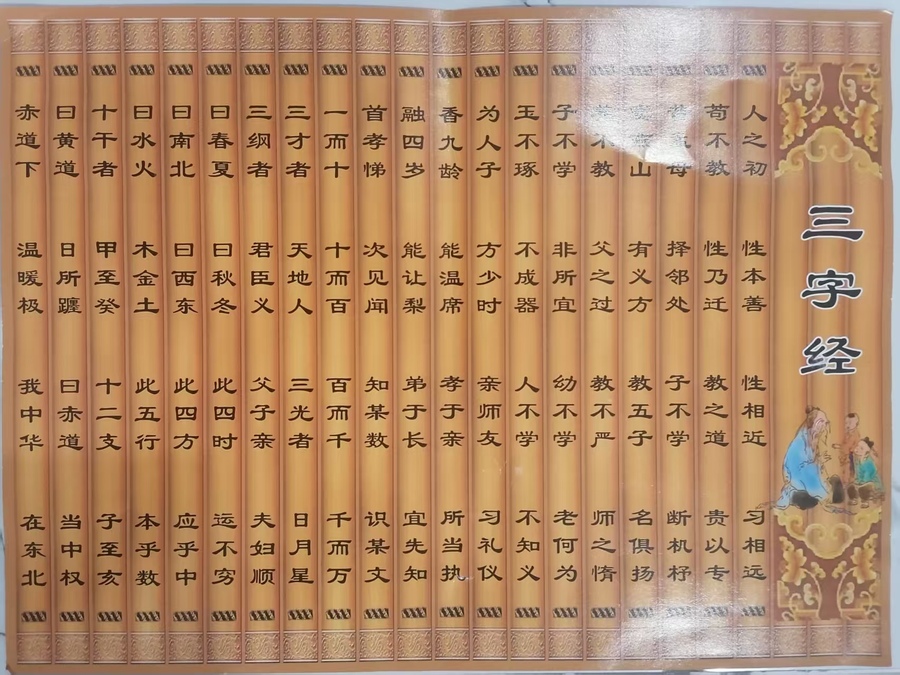 三字经
人之初 性本善 性相近 习相远
苟不教 性乃迁 教之道 贵以专
母 择邻处 子不学 断机杼
山 有义方 教五子 名俱扬
不教 父之过 教不严 师之惰
子不学 非所宜 幼不学 老何为
玉不琢 不成器 人不学 不知义
为人子 方少时 亲师友 习礼仪
香九龄 能温席 孝于亲 所当执
融四岁 能让梨 弟于长 宜先知
首孝悌 次见闻 知某数 识某文
一而十 十而百 百而千 千而万
三才者 天地人 三光者 日月星
三纲者 君臣义 父子亲 夫妇顺
曰春夏 曰秋冬 此四时 运不穷
曰南北 曰西东 此四方 应乎中
曰水火 木金土 此五行 本乎数
十干者 甲至癸 十二支 子至亥
曰黄道 日所躔 曰赤道 当中权
赤道下 温暖极 我中华 在东北